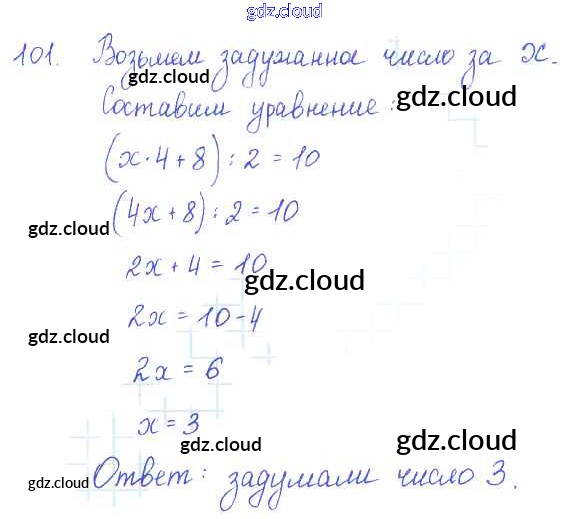 gdz.cloud
101. Возьмем задуманное число за x.
gdz.cloud
Составим уравнение: gdz.cloud
(x·4+8):2=10
(4x+8):2=10
gdz.cloud
2x+4=10
gdz.cloud
2x=10-4
gdz.cloud
2x=6
x=3
gdz.cloud gdz.cloud
Ответ: задумали число 3.
gdz.cloud gdz.cloud